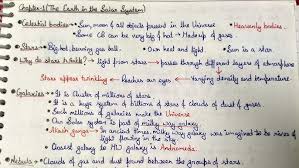 Chapter-1 (The Earth in the Solar System)
• Celestial bodies → Sun, moon & all objects present in the Universe → Heavenly bodies.
• Some CB can be very big & hot → Made up of gases.
• Stars → Big, hot, burning gas ball. • Own heat and light. • Sun is a star.
• Why do stars twinkle? → light from stars → passes through different layers of atmosphere
Stars appear twinkling ← Reaches our eyes ← Varying density and temperature
• Galaxies → • It is Cluster of millions of stars
• It is a huge system of billions of stars & clouds of dust & gases.
• Such millions of galaxies make the Universe
• Our Solar system is part of milky way galaxy.
• Akash ganga → In ancient times, milky way galaxy was imagined to be a river of light flowing in the sky.
• Closest galaxy to MW galaxy is Andromeda.
• Nebula → Clouds of gas and dust found between the groups of stars.